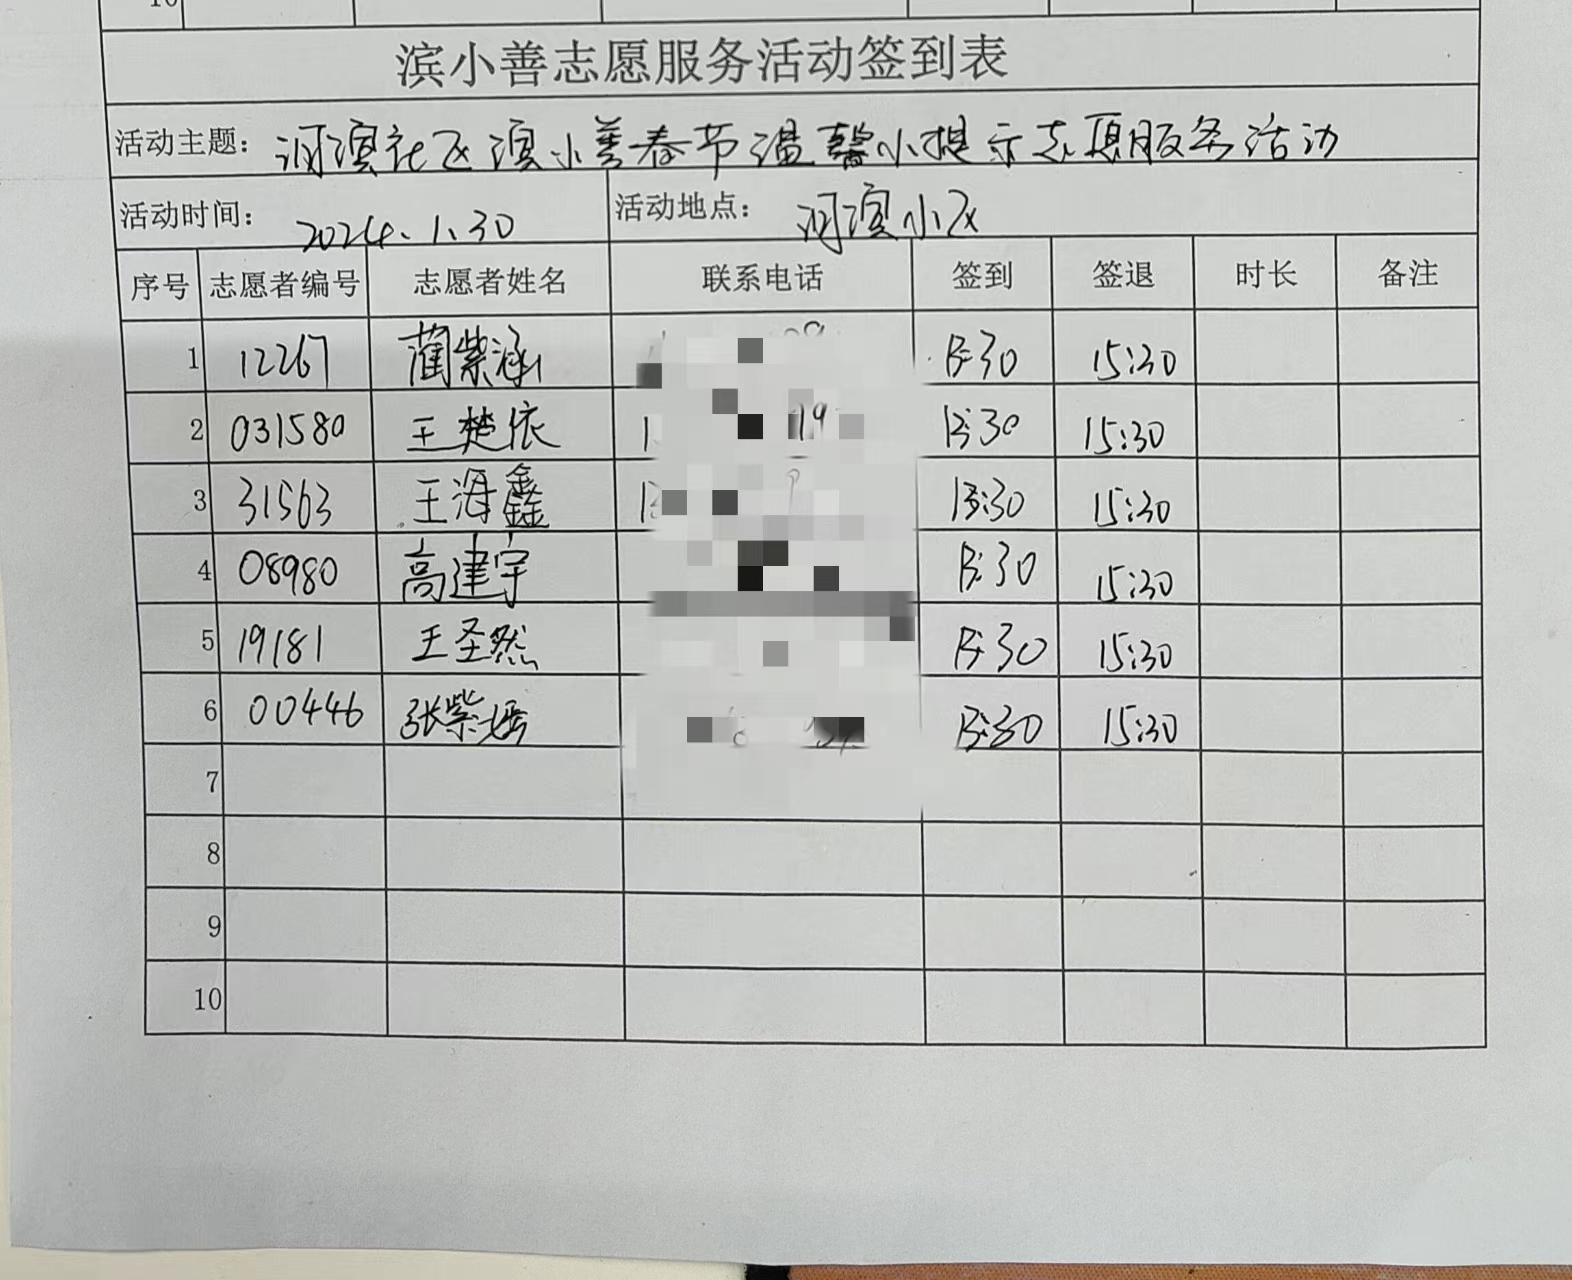 10
滨小善志愿服务活动签到表
活动主题： 河滨社区滨小善春节温馨小提示志愿服务活动
活动时间： 2024.1.30 活动地点： 河滨小区
序号 志愿者编号 志愿者姓名 联系电话 签到 签退 时长 备注
1 12267 蔺紫涵 13:30 15:30
2 031580 王楚依 13:30 15:30
3 31563 王海鑫 13:30 15:30
4 08980 高建宇 13:30 15:30
5 19181 王圣然 13:30 15:30
6 00446 张紫瑶 13:30 15:30
7
8
9
10